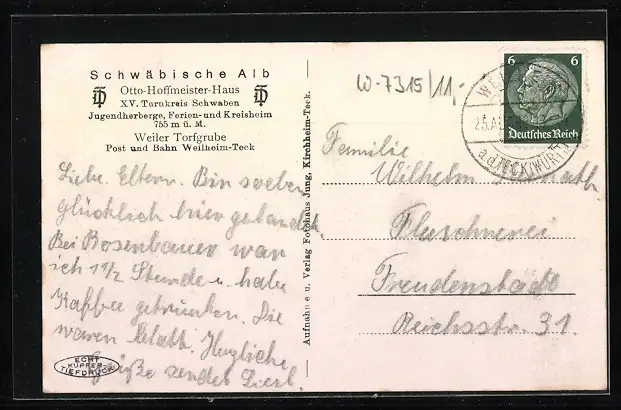 Schwäbische Alb
Otto-Hoffmeister-Haus
XV. Turnkreis Schwaben
Jugendherberge, Ferien- und Kreisheim
755 m ü. M.
Weiler Torfgrube
Post und Bahn Weilheim-Teck
Liebe Eltern. Bin soeben
glücklich hier gelandet.
Bei Bosenbauer war
ich 1 1/2 Stunde u. habe
Kaffee getrunken. Die
waren platt. Herzliche
Grüße sendet Liesl.
ECHT
KUPFER-
TIEFDRUCK
Aufnahme u. Verlag Fotohaus Jung, Kirchheim-Teck.
W-7315/11,-
6 6
Deutsches Reich
a.d. TECK (WÜRTT)
Familie
Wilhelm
Flaschnerei
Freudenstadt
Reichsstr. 31.